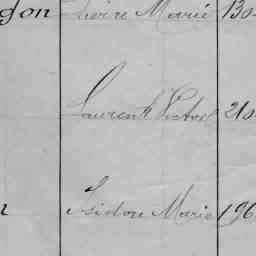 gon Marie 130
Laurent Victor 210
Isidore Marie 196